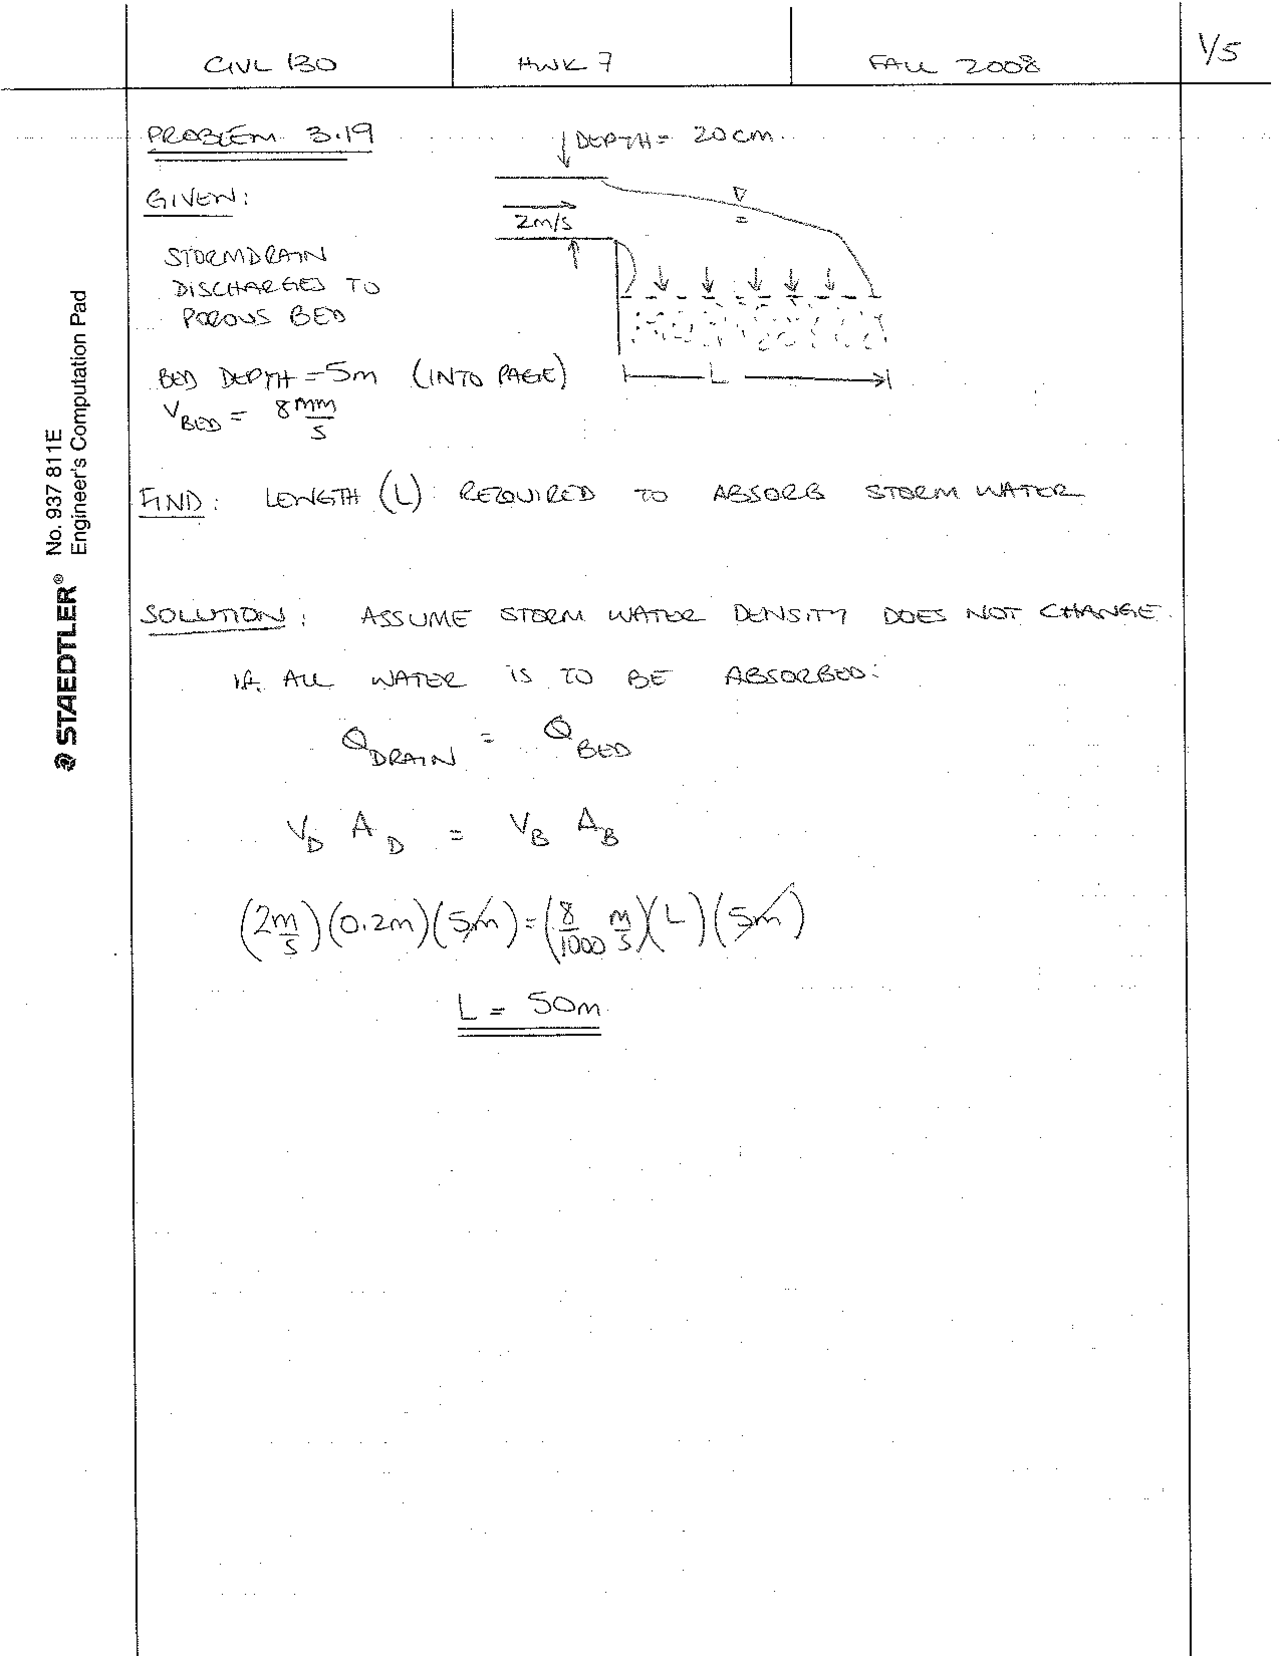 CIVL 130 HWK 7 FALL 2008 1/5
PROBLEM 3.19
DEPTH = 20 cm
GIVEN:
2m/s
STORMDRAIN
DISCHARGES TO
POROUS BED
BED DEPTH = 5m (INTO PAGE)
L
V_BED = 8 mm/s
FIND: LENGTH (L) REQUIRED TO ABSORB STORM WATER
SOLUTION: ASSUME STORM WATER DENSITY DOES NOT CHANGE.
IF ALL WATER IS TO BE ABSORBED:
Q_DRAIN = Q_BED
V_D A_D = V_B A_B
(2 m/s)(0.2m)(5m) = (8/1000 m/s)(L)(5m)
L = 50m
STAEDTLER® No. 937 811E
Engineer's Computation Pad